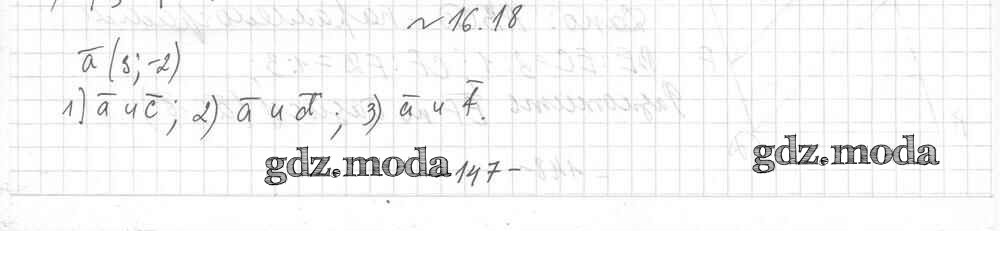 ~16.18
a̅ (3; -2)
1) a̅ и c̅; 2) a̅ и d̅; 3) a̅ и f̅.
gdz.moda
147 -
gdz.moda